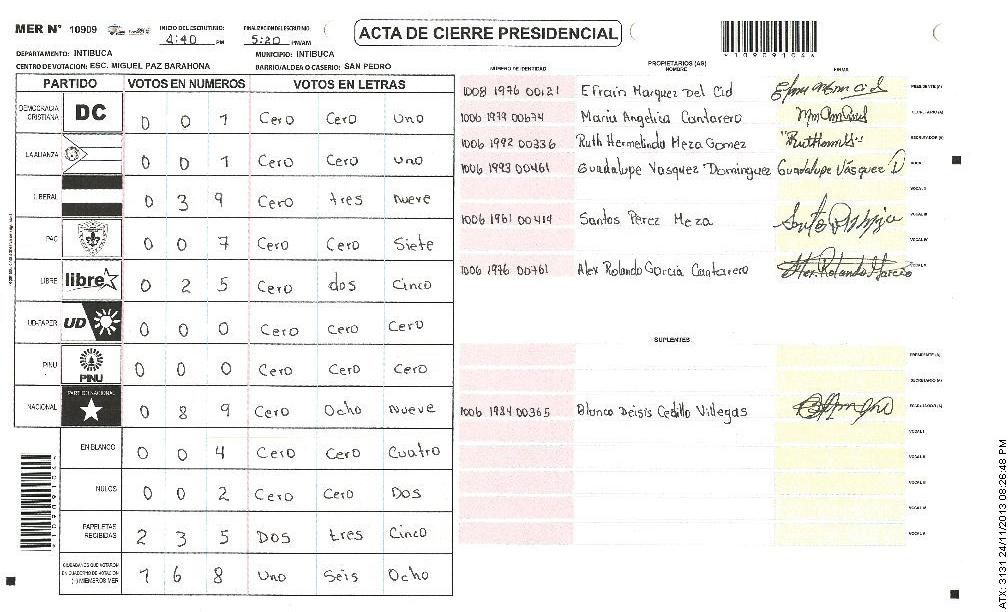 MER N° 10909 INICIO DEL ESCRUTINIO: 4:40 PM FINALIZACION DEL ESCRUTINIO: 5:20 PM/AM
ACTA DE CIERRE PRESIDENCIAL
DEPARTAMENTO: INTIBUCA MUNICIPIO: INTIBUCA
CENTRO DE VOTACION: ESC. MIGUEL PAZ BARAHONA BARRIO/ALDEA O CASERIO: SAN PEDRO
PARTIDO VOTOS EN NUMEROS VOTOS EN LETRAS
DEMOCRACIA CRISTIANA DC 0 0 1 Cero Cero Uno
LA ALIANZA 0 0 1 Cero Cero Uno
LIBERAL 0 3 9 Cero tres nueve
PAC 0 0 7 Cero Cero Siete
LIBRE libre 0 2 5 Cero dos Cinco
UD-FAPER UD 0 0 0 Cero Cero Cero
PINU PINU 0 0 0 Cero Cero Cero
NACIONAL PARTIDO NACIONAL 0 8 9 Cero Ocho Nueve
EN BLANCO 0 0 4 Cero Cero Cuatro
NULOS 0 0 2 Cero Cero Dos
PAPELETAS RECIBIDAS 2 3 5 Dos tres Cinco
CIUDADANOS QUE VOTARON EN CUADERNO DE VOTACION (+) MIEMBROS MER 1 6 8 Uno Seis Ocho
NUMERO DE IDENTIDAD PROPIETARIOS (AS) NOMBRE FIRMA
1008 1976 00121 Efrain Marquez Del Cid PRESIDENTE (A)
Maria Angelica Cantarero SECRETARIO (A)
1006 1992 00336 Ruth Hermelinda Meza Gomez ESCRUTADOR (A)
1006 1993 00461 Guadalupe Vasquez Dominguez Guadalupe Vásquez D VOCAL I
VOCAL II
1006 1961 00414 Santos Perez Meza VOCAL III
VOCAL IV
1006 1976 00761 Alex Rolando Garcia Cantarero VOCAL V
SUPLENTES
PRESIDENTE (A)
SECRETARIO (A)
1006 1984 00365 Blanca Deisis Cedillo Villegas ESCRUTADOR (A)
VOCAL I
VOCAL II
VOCAL III
VOCAL IV
VOCAL V
ATX: 3131 24/11/2013 08:26:48 PM